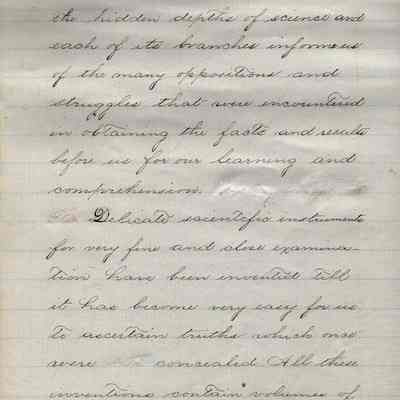 the hidden depths of science and
each of its branches informs us
of the many oppositions and
struggles that were encountered
in obtaining the facts and results
before us for our learning and
comprehension.
Delicate scientific instruments
for very fine and close examina-
tion have been invented till
it has become very easy for us
to ascertain truths which once
were concealed All these
inventions contain volumes of